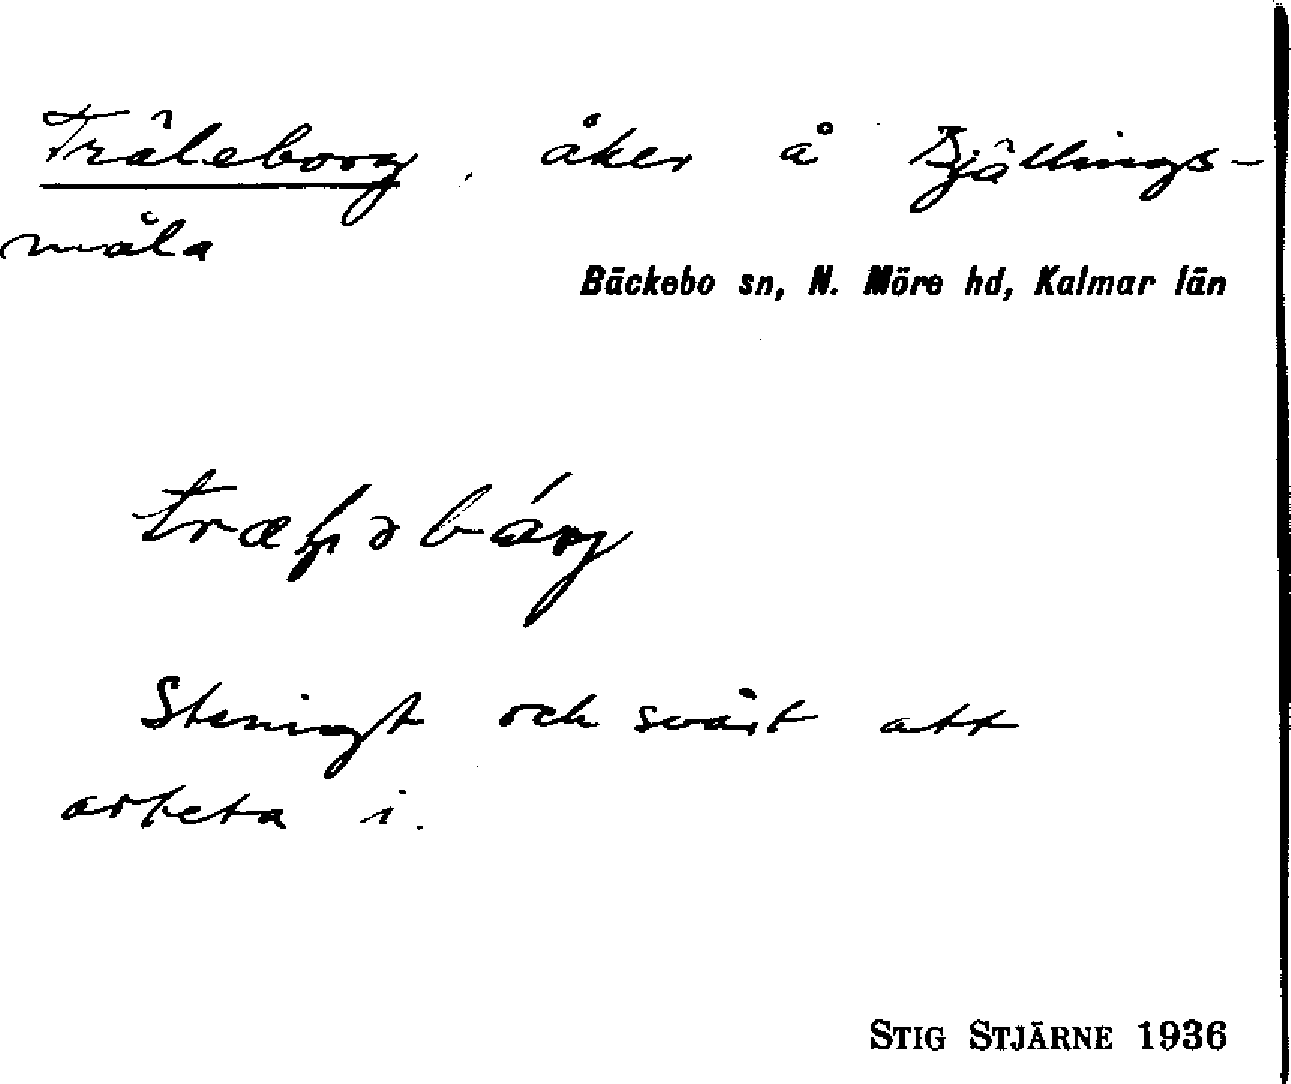 Träleborg, åker å Bjällings-
måla
Bäckebo sn, N. Möre hd, Kalmar län
Stenigt och svårt att
arbeta i.
STIG STJÄRNE 1936